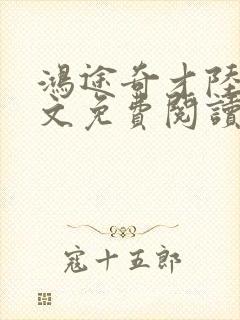 鴻途奇才陸
文免費閱讀
寇十五郎